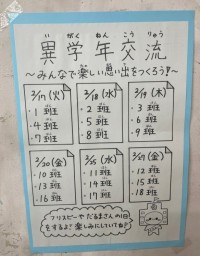 いがくねんこうりゅう
異学年交流
～みんなで楽しい思い出をつくろう!!～
3/17(火)
・1班
・4班
・7班
3/18(水)
・2班
・5班
・8班
3/19(木)
・3班
・6班
・9班
3/20(金)
・10班
・13班
・16班
3/25(水)
・11班
・14班
・17班
・12班
・15班
・18班
フリスビーやだるまさんの1日
をするよ!楽しみにしていてね!